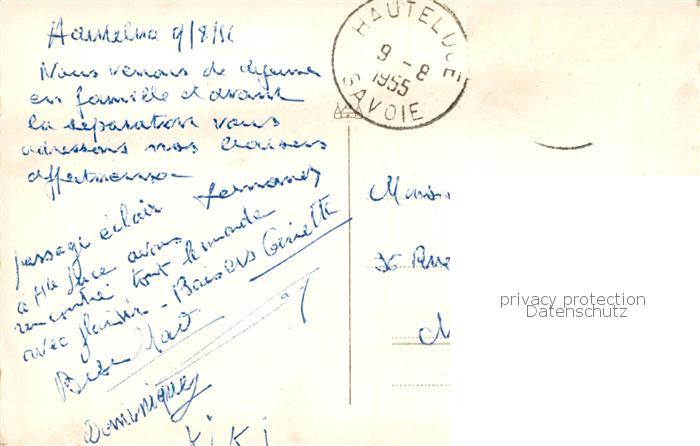 Hauteluce 9/8/55
Nous venons de déjeuner
en famille et avant
la séparation vous
adressons nos baisers
affectueux
Fernande
passage éclair
à Hte Luce avons
rencontré tout le monde
avec plaisir - Baisers Ginette
Bise
Dominique
Kiki
HAUTELUCE
9 - 8
1955
SAVOIE
Monsi
36 Rue
M
privacy protection
Datenschutz